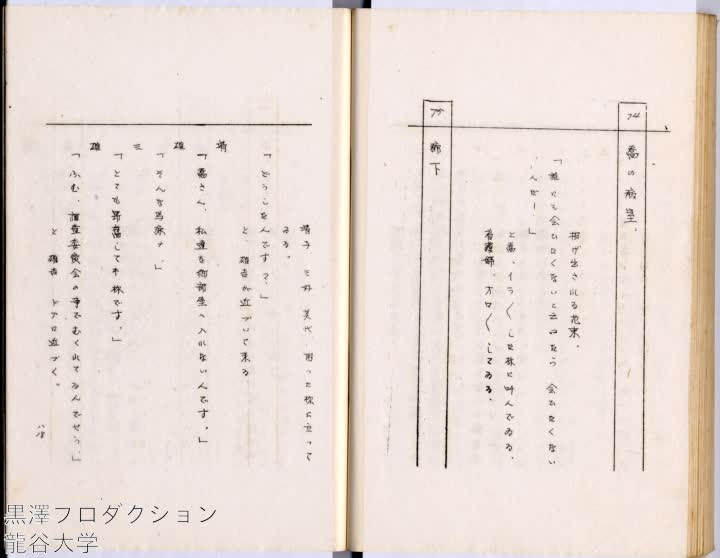 74
喬の病室。
投げ出される花束。
「誰にも会ひたくないと云つたら 会ひたくない
んだー。」
と喬、イラ〱した様に叫んでゐる。
看護婦、オロ〱してゐる。
75
廊下
靖子 三好 美代、困つた様に立つて
ゐる。
「どうしたんです？」
と、雄吉が近づいて来る
靖「喬さん、私達を御部屋へ入れないんです。」
雄「そんな馬鹿な。」
三「とても昂奮して不様です。」
雄「ふむ、調査委員会の事でむくれてゐんでせう。」
と 雄吉 ドアに近づく。
黒澤プロダクション
龍谷大学